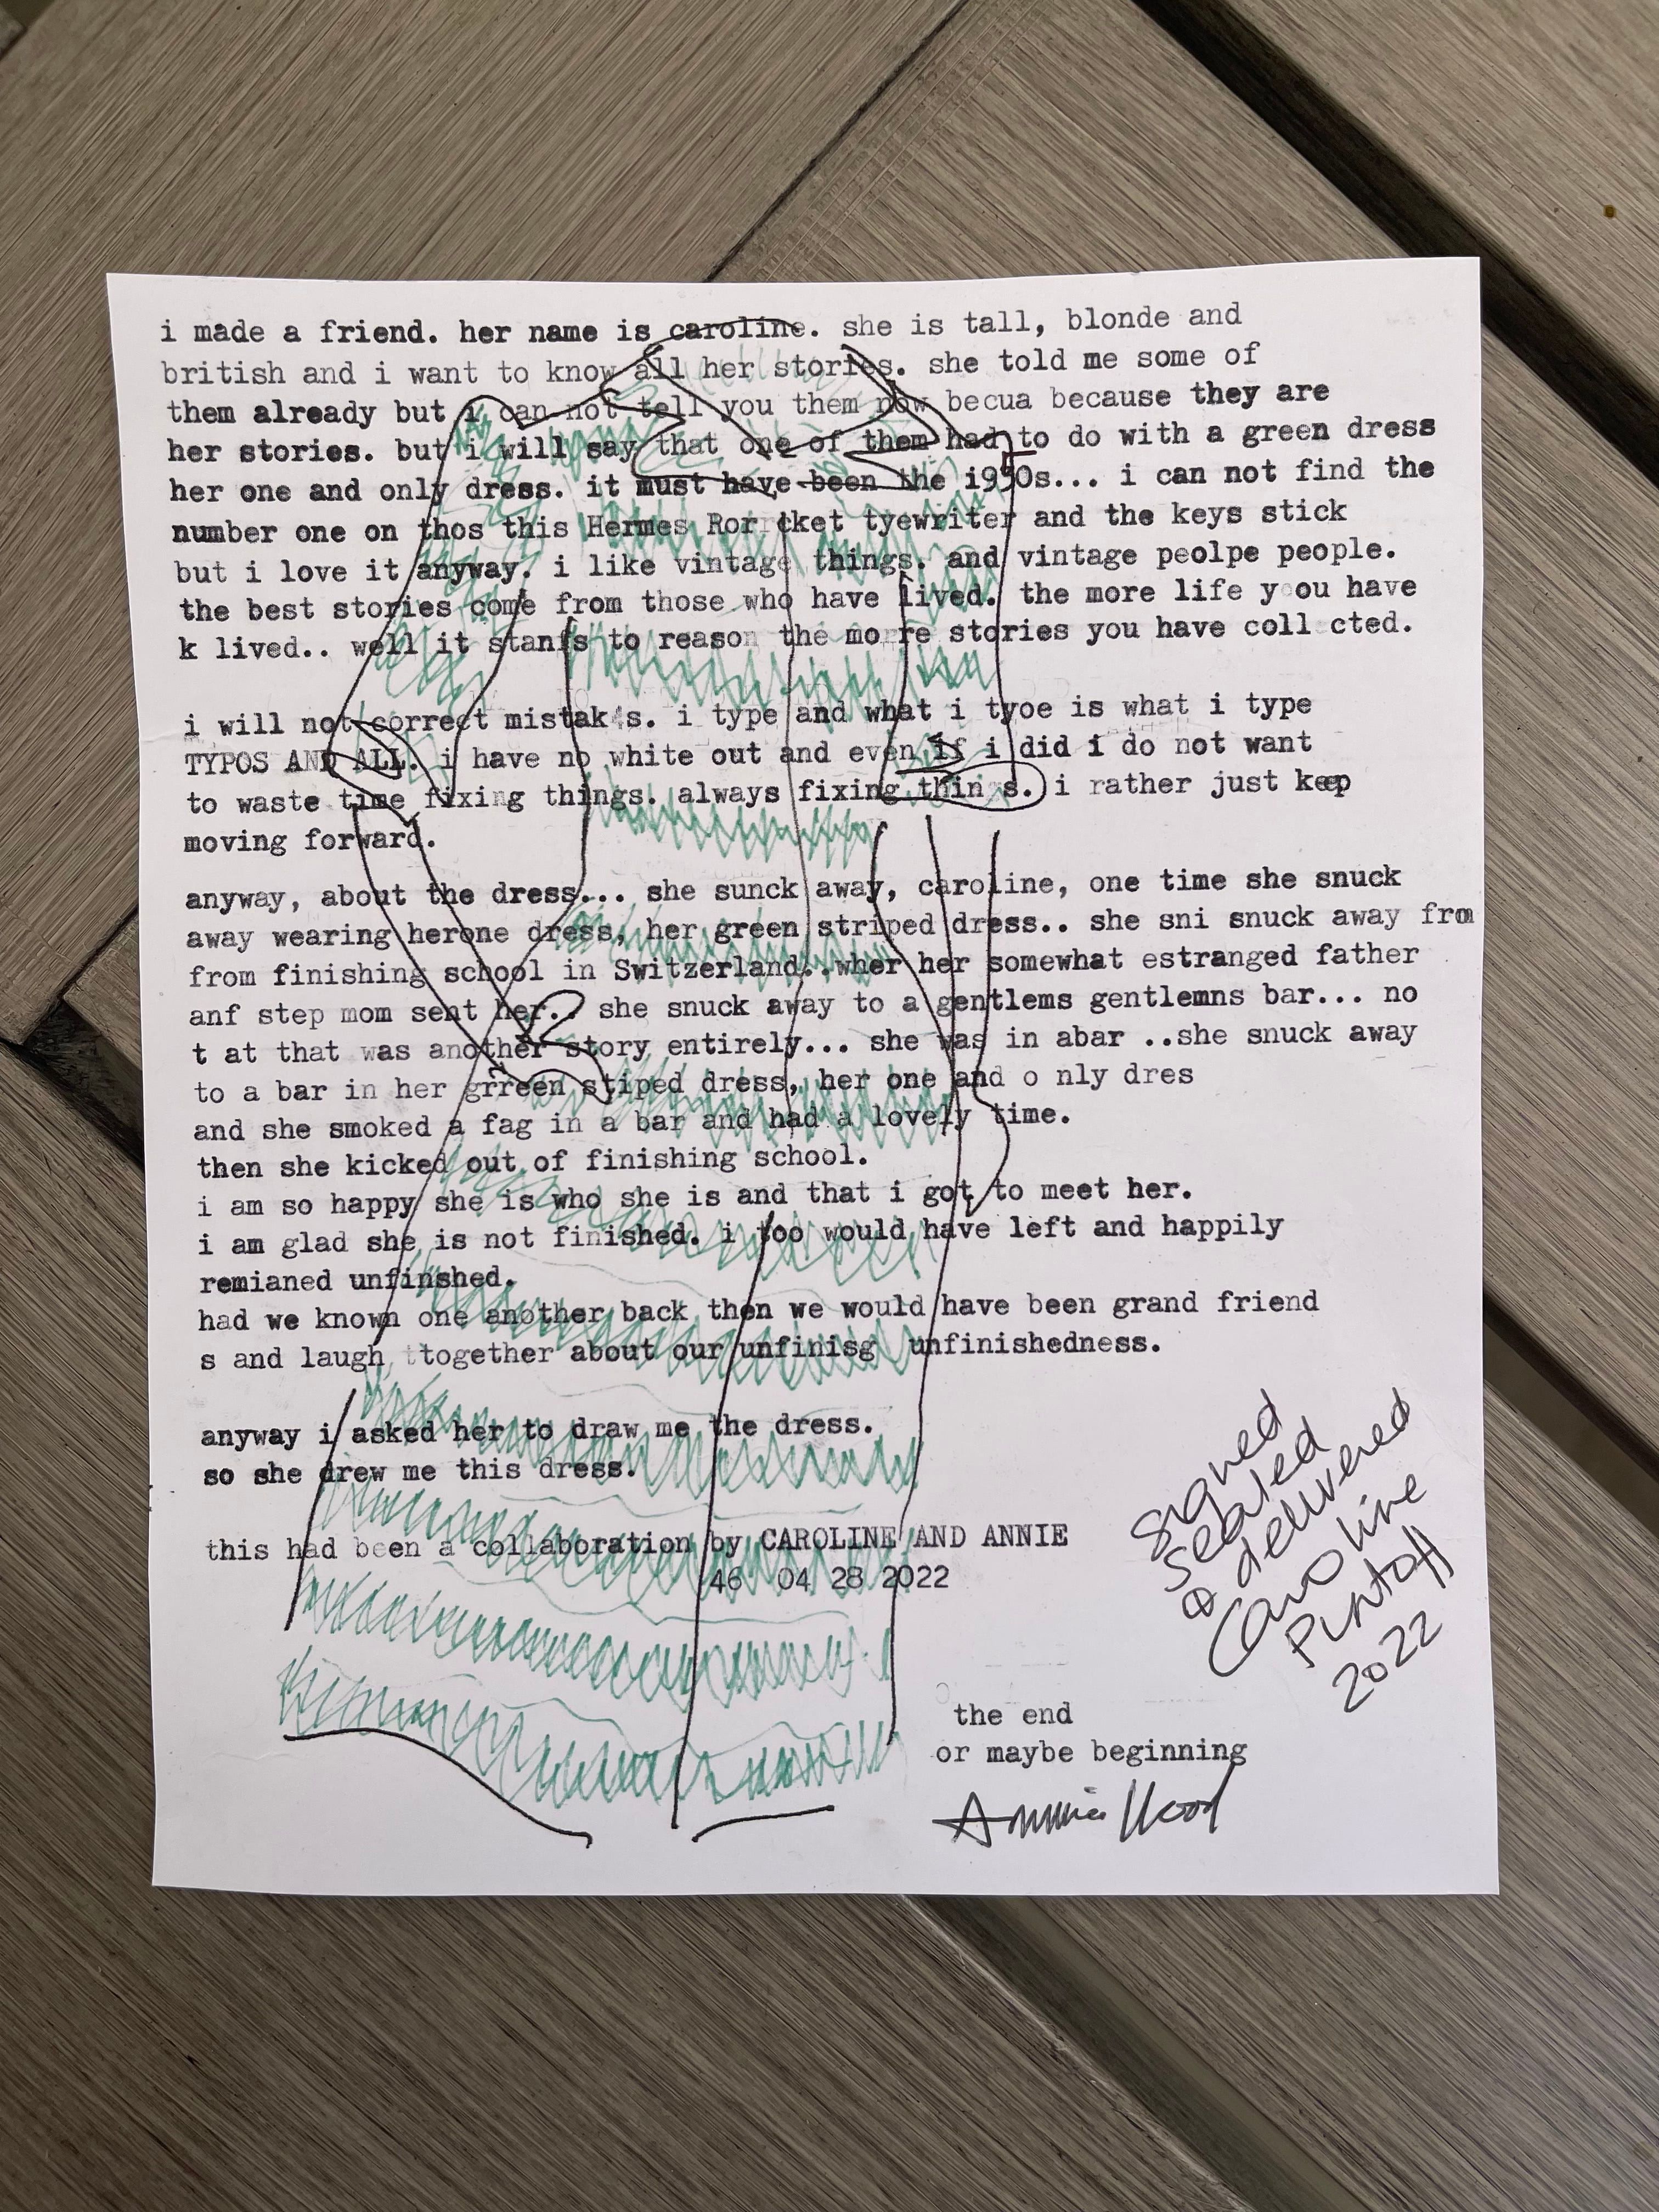 i made a friend. her name is caroline. she is tall, blonde and
british and i want to know all her stories. she told me some of
them already but i can not tell you them now becua because they are
her stories. but i will say that one of them had to do with a green dress
her one and only dress. it must have been the i950s... i can not find the
number one on thos this Hermes Ror cket tyewriter and the keys stick
but i love it anyway. i like vintage things. and vintage peolpe people.
the best stories come from those who have lived. the more life y ou have
k lived.. well it stanfs to reason the mo re stories you have coll cted.
i will not correct mistak s. i type and what i tyoe is what i type
TYPOS AND ALL. i have no white out and even if i did i do not want
to waste time fixing things. always fixing thin s. i rather just keep
moving forward.
anyway, about the dress... she sunck away, caroline, one time she snuck
away wearing herone dress, her green striped dress.. she sni snuck away from
from finishing school in Switzerland..wher her somewhat estranged father
anf step mom sent her.. she snuck away to a gentlems gentlemns bar... no
t at that was another story entirely... she was in abar ..she snuck away
to a bar in her grreen stiped dress, her one and o nly dres
and she smoked a fag in a bar and had a lovely time.
then she kicked out of finishing school.
i am so happy she is who she is and that i got to meet her.
i am glad she is not finished. i too would have left and happily
remianed unfinshed.
had we known one another back then we would have been grand friend
s and laugh ttogether about our unfinisg unfinishedness.
anyway i asked her to draw me the dress.
so she drew me this dress.
this had been a collaboration by CAROLINE AND ANNIE
46 04 28 2022
signed
sealed
& delivered
Caroline
Pintoff
2022
the end
or maybe beginning
Annie Wood